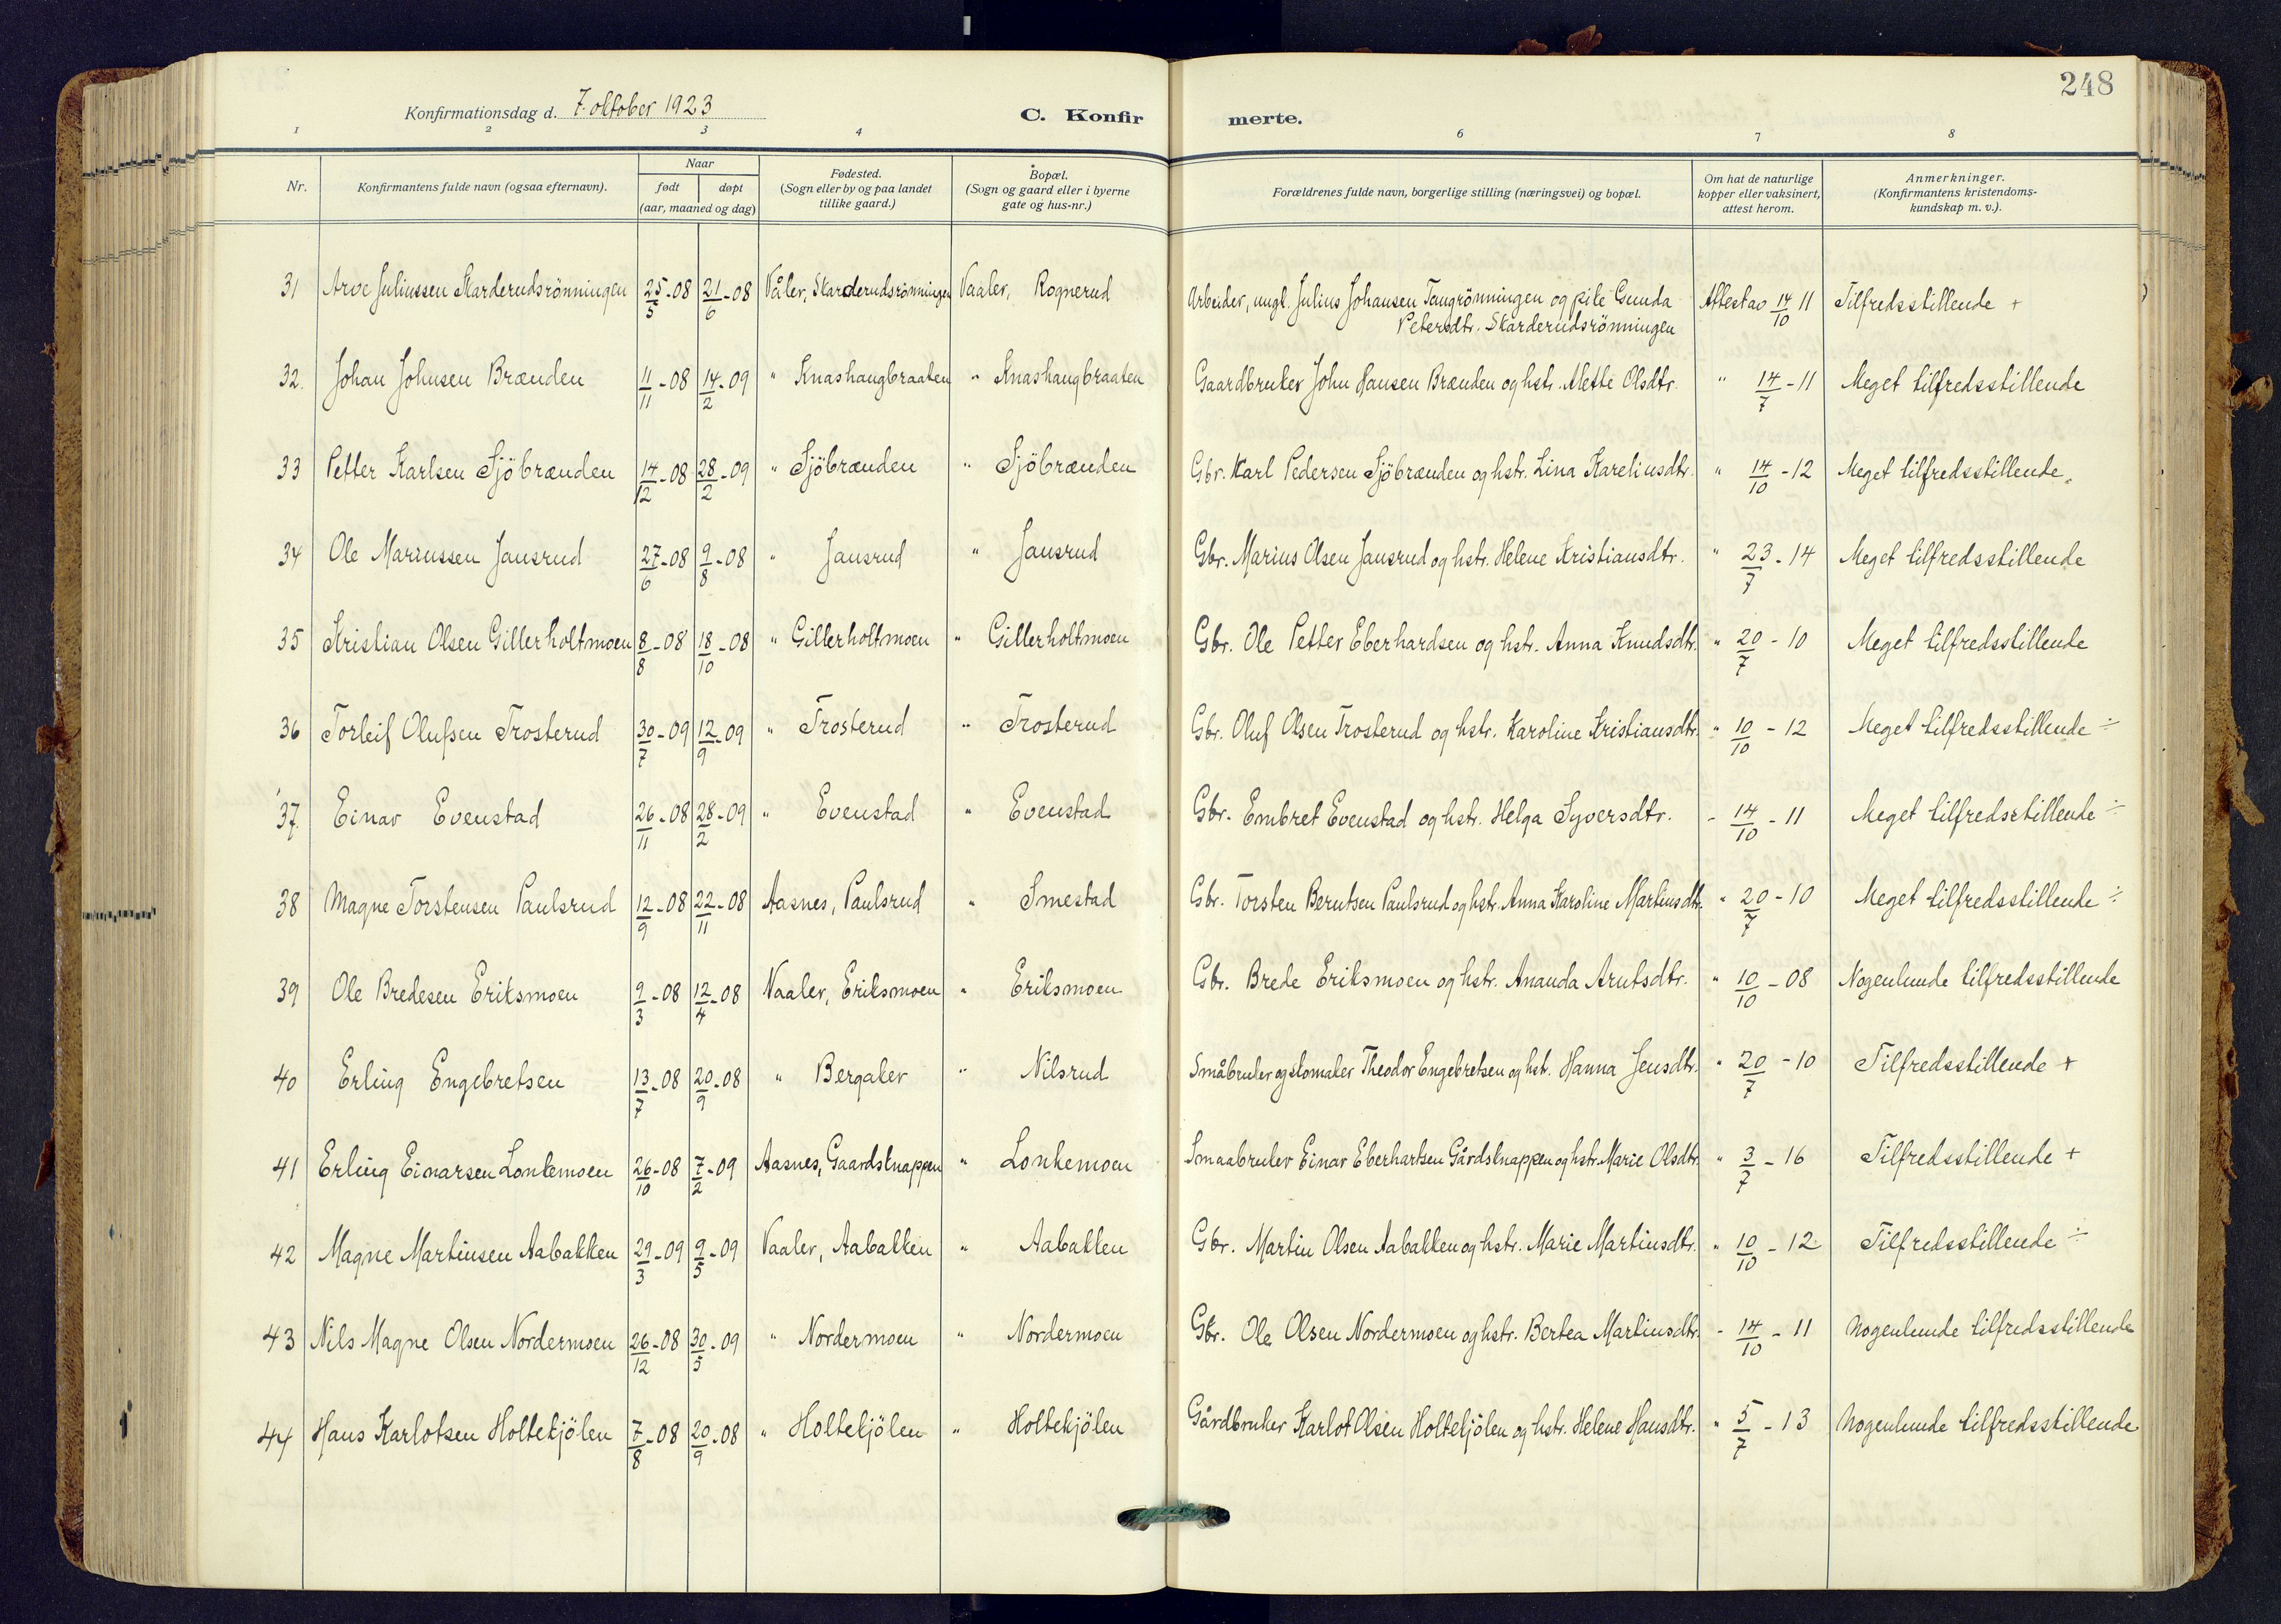 248
Konfirmationsdag d. 7. oktober 1923
C. Konfirmerte.
1 2 3 4 6 7 8
Nr.
Konfirmantens fulde navn (ogsaa efternavn).
Naar
født døpt
(aar, maaned og dag)
Fødested.
(Sogn eller by og paa landet
tillike gaard.)
Bopæl.
(Sogn og gaard eller i byerne
gate og hus-nr.)
Forældrenes fulde navn, borgerlige stilling (næringsvei) og bopæl.
Om hat de naturlige
kopper eller vaksinert,
attest herom.
Anmerkninger.
(Konfirmantens kristendoms-
kundskap m. v.).
31 Arve Juliussen Skarderudsrönningen 25/5-08 21/6-08 Våler, Skarderudsrönningen Vaaler, Rognerud Arbeider, ungk. Julius Johansen Taugrönningen og pike Gunda Attestav 14/10 11 Tilfredsstillende +
Petersdtr. Skarderudsrönningen
32. Johan Johnsen Brænden 11/11-08 14/2-09 " Knashaugbraaten " Knashaugbraaten Gaardbruker John Hansen Brænden og hstr. Mette Olsdtr. " 14/7-11 Meget tilfredsstillende
33 Petter Karlsen Sjöbrænden 14/12-08 28/2-09 " Sjöbrænden " Sjöbrænden Gbr. Karl Pedersen Sjöbrænden og hstr. Lina Kareliusdtr. " 14/10-12 Meget tilfredsstillende.
34 Ole Mariussen Jansrud 27/6-08 9/8-08 " Jansrud " Jansrud Gbr. Marius Olsen Jansrud og hstr. Helene Kristiansdtr. " 23/7-14 Meget tilfredsstillende
35 Kristian Olsen Gillerholtmoen 8/8-08 18/10-08 " Gillerholtmoen " Gillerholtmoen Gbr. Ole Petter Eberhardsen og hstr. Anna Knudsdtr. " 20/7-10 Meget tilfredsstillende
36 Torleif Olufsen Trosterud 30/7-09 12/9-09 " Trosterud " Trosterud Gbr. Oluf Olsen Trosterud og hstr. Karoline Kristiansdtr. " 10/10-12 Meget tilfredsstillende ÷
37. Einar Evenstad 26/11-08 28/2-09 " Evenstad " Evenstad Gbr. Embret Evenstad og hstr. Helga Syversdtr. " 14/10-11 Meget tilfredsstillende ÷
38 Magne Torstensen Paulsrud 12/9-08 22/11-08 Aasnes, Paulsrud " Smestad Gbr. Torsten Berntsen Paulsrud og hstr. Anna Karoline Martinsdtr. " 20/7-10 Meget tilfredsstillende ÷
39 Ole Bredesen Eriksmoen 9/3-08 12/4-08 Vaaler, Eriksmoen " Eriksmoen Gbr. Brede Eriksmoen og hstr. Ananda Arntsdtr. " 10/10-08 Nogenlunde tilfredsstillende
40 Erling Engebretsen 13/7-08 20/9-08 " Bergaker " Nilsrud Småbruker og skomaker Theodor Engebretsen og hst. Hanna Jensdtr. " 20/7-10 Tilfredsstillende +
41 Erling Einarsen Lonkemoen 26/10-08 7/2-09 Aasnes, Gaardsknappen " Lonkemoen Smaabruker Einar Eberhartsen Gårdsknappen og hstr. Marie Olsdtr. " 3/7-16 Tilfredsstillende +
42 Magne Martinsen Aabakken 29/3-09 9/5-09 Vaaler, Aabakken " Aabakken Gbr. Martin Olsen Aabakken og hstr. Marie Martinsdtr. " 10/10-12 Tilfredsstillende ÷
43 Nils Magne Olsen Nordermoen 26/12-08 30/5-09 " Nordermoen " Nordermoen Gbr. Ole Olsen Nordermoen og hstr. Bertea Martinsdtr. " 14/10-11 Nogenlunde tilfredsstillende
44 Hans Karlotsen Holtekjölen 7/8-08 20/9-08 " Holtekjölen " Holtekjölen Gårdbruker Karlot Olsen Holtekjölen og hstr. Helene Hansdtr. " 5/7-13 Nogenlunde tilfredsstillende